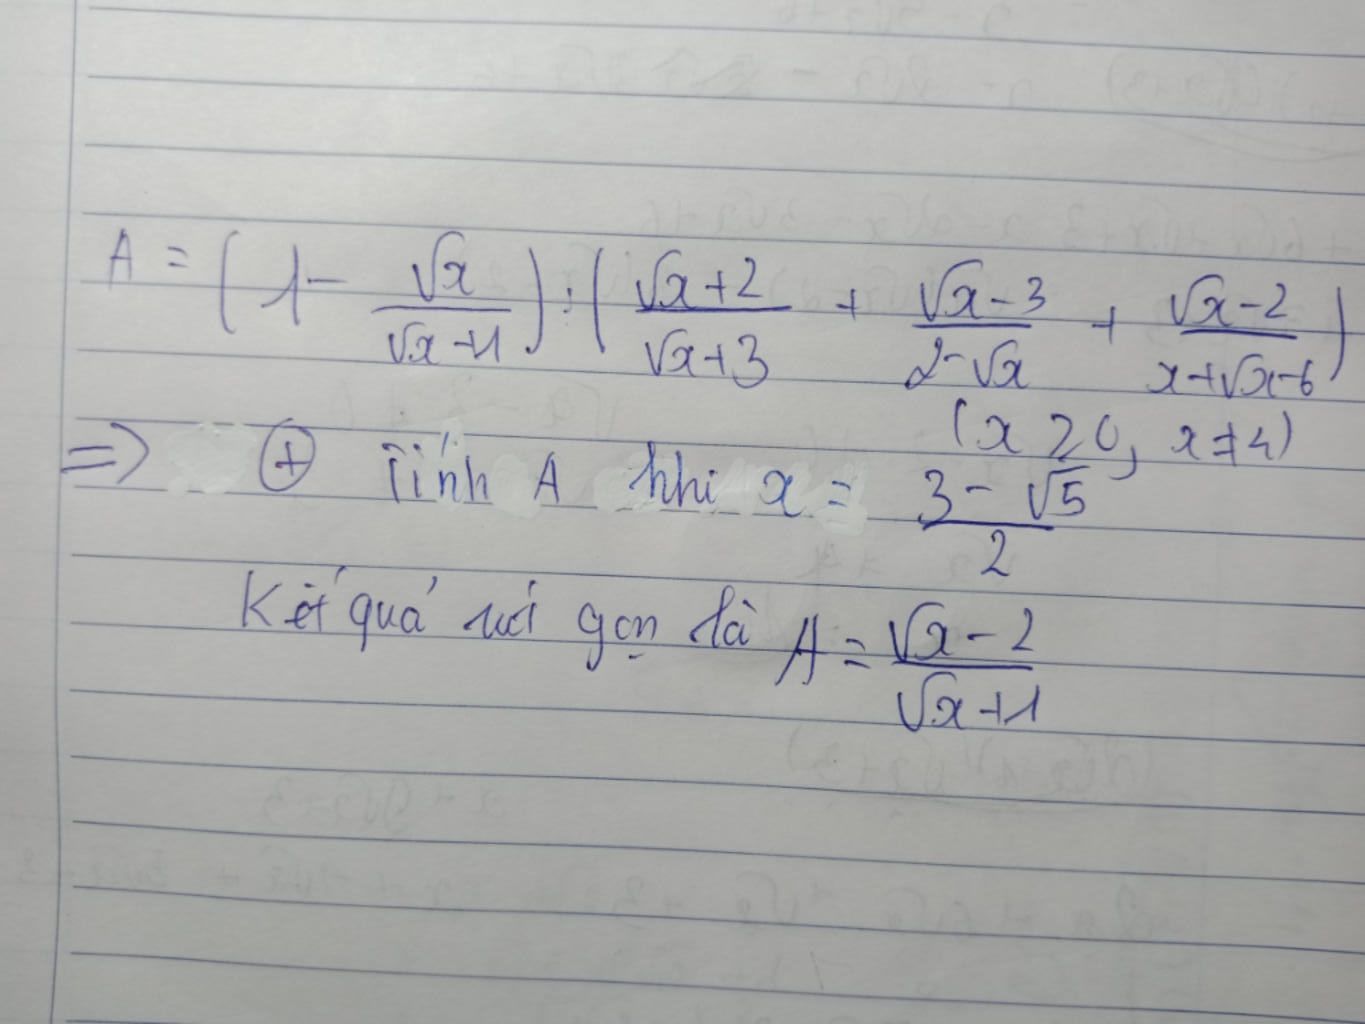 A = (1 - √x/(√x+1)) : ((√x+2)/(√x+3) + (√x-3)/(2-√x) + (√x-2)/(x+√x-6))
(x ≥ 0, x ≠ 4)
=> ⊕ Tính A khi x = (3-√5)/2
Kết quả rút gọn là A = (√x-2)/(√x+1)